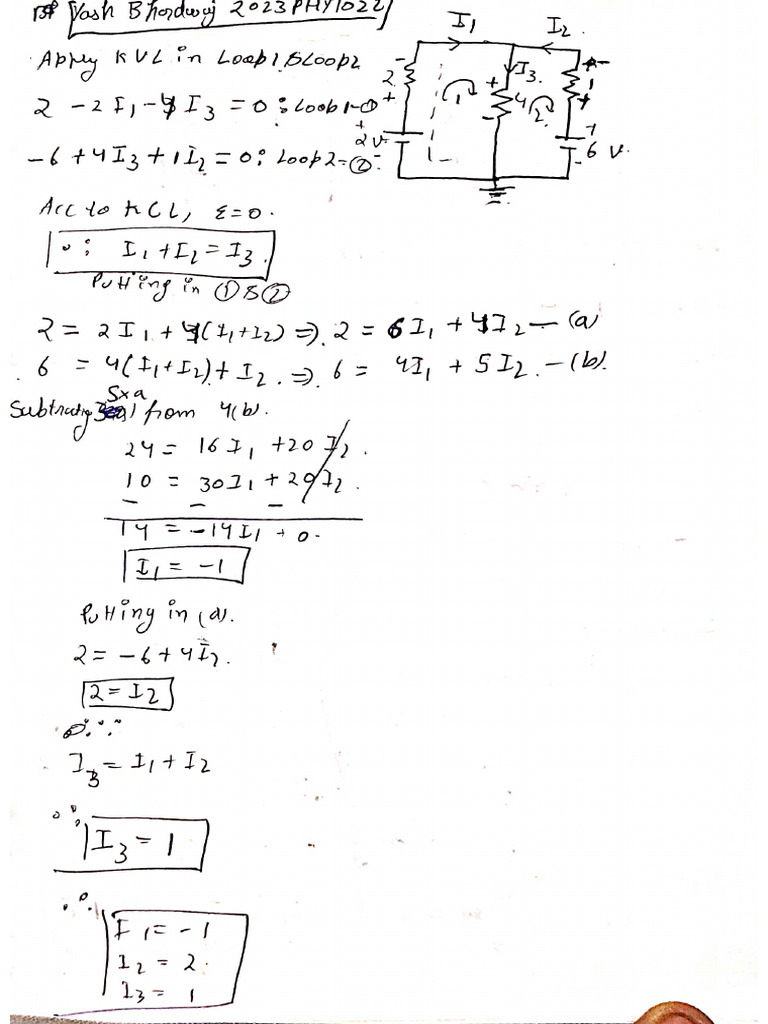 Yash Bhardwaj 2023PHY1022
Apply KVL in Loop1 & Loop2
2 - 2I₁ - 4I₃ = 0 : Loop1-①
-6 + 4I₃ + 1I₂ = 0 : Loop2-②
I₁ I₂
I₃
- + 2
+ - 4
- + 1
1 2
+ 2V -
+ 6 V -
Acc to KCL, Σ=0.
∴ I₁ + I₂ = I₃
Putting in ① & ②
2 = 2I₁ + 4(I₁+I₂) ⇒ 2 = 6I₁ + 4I₂ — (a)
6 = 4(I₁+I₂) + I₂ ⇒ 6 = 4I₁ + 5I₂ — (b).
Subtracting 5×a from 4(b).
24 = 16I₁ + 20I₂.
10 = 30I₁ + 20I₂.
- - -
14 = -14I₁ + 0.
I₁ = -1
Putting in (a).
2 = -6 + 4I₂.
2 = I₂
∴
I₃ = I₁ + I₂
∴ I₃ = 1
∴
I₁ = -1
I₂ = 2.
I₃ = 1